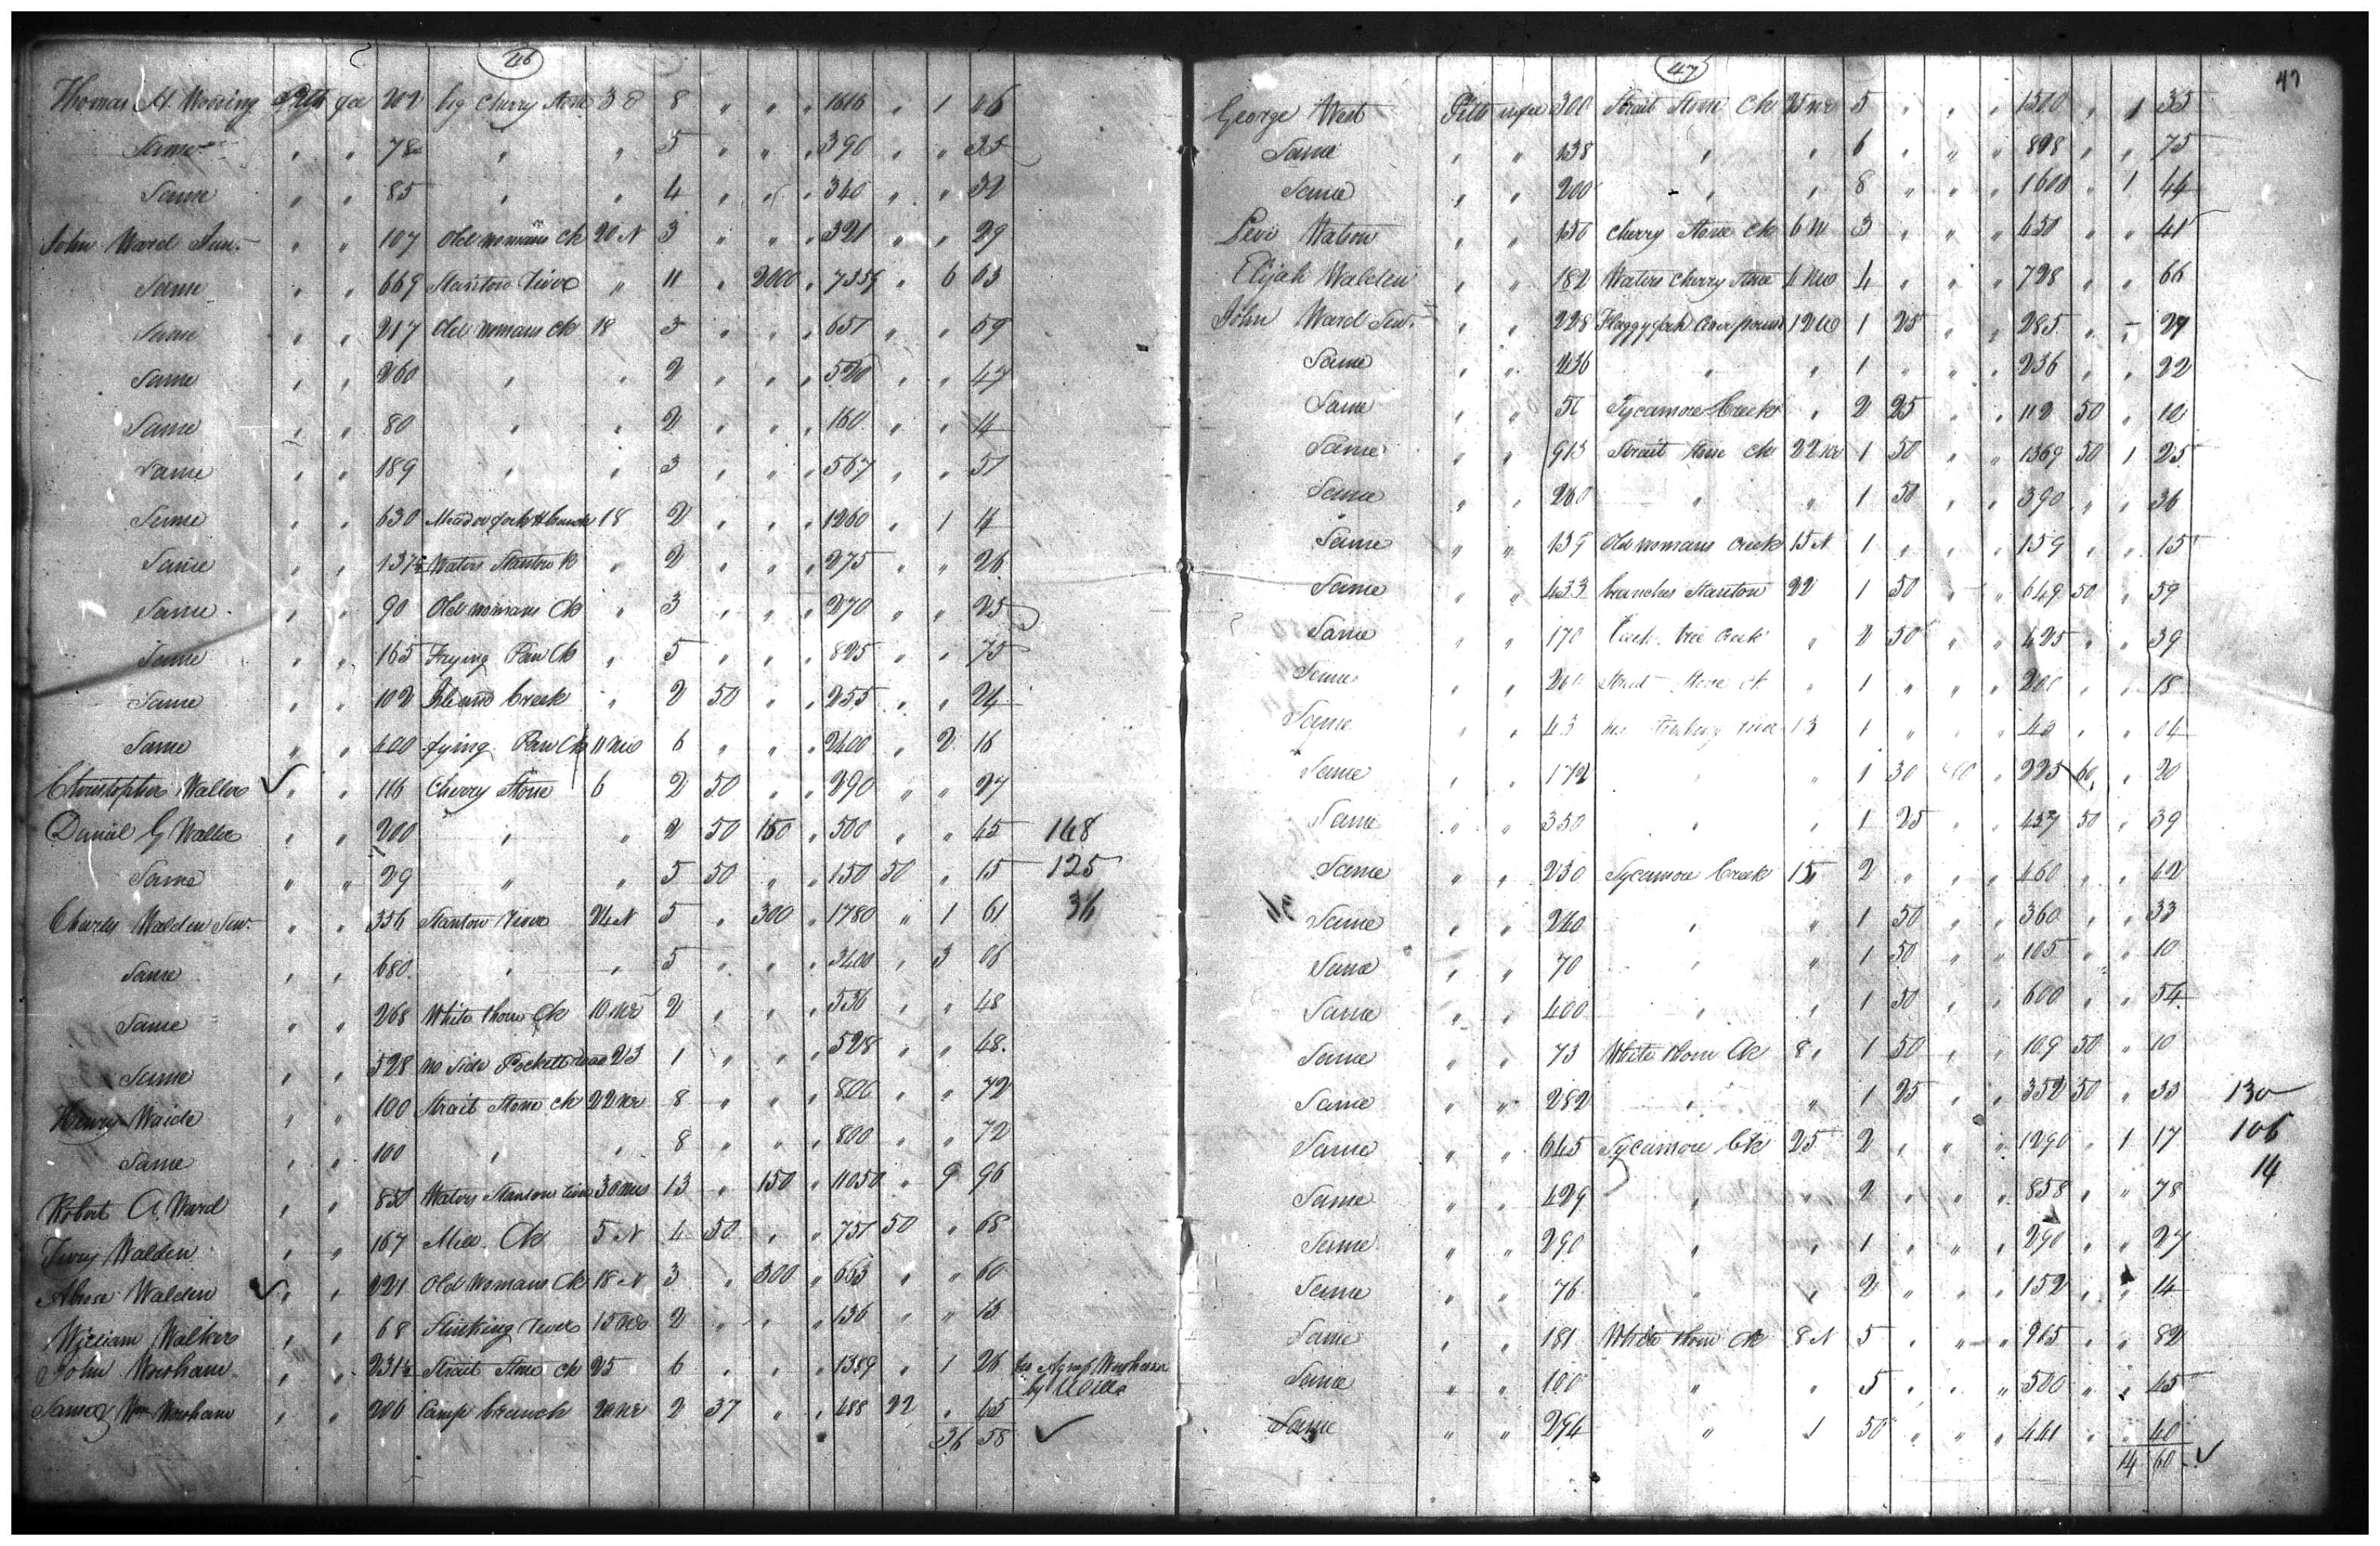 46
Thomas H. Wooding Pitts fee 202 big Cherry Stone 3 8 8 " " " 1616 " 1 46
Same " " 78 " " 5 " " " 390 " " 35
Same " " 85 " " 4 " " " 340 " " 32
John Ward Jun. " " 107 Old womans Ck 20 N 3 " " " 321 " " 29
Same " " 669 Stanton River " 11 " 2000 " 7359 " 6 63
Same " " 217 Old womans Ck 18 3 " " " 651 " " 59
Same " " 260 " " 2 " " " 520 " " 47
Same " " 80 " " 2 " " " 160 " " 14
Same " " 189 " " 3 " " " 567 " " 51
Same " " 630 Meadow fork & branch 18 2 " " " 1260 " 1 14
Same " " 137½ Waters Stanton R " 2 " " " 275 " " 26
Same " " 90 Old womans Ck " 3 " " " 270 " " 25
Same " " 165 Frying Pan Ck " 5 " " " 825 " " 75
Same " " 102 Island Creek " 2 50 " " 255 " " 24
Same " " 400 frying Pan Ck 11 6 " " " 2400 " 2 16
Christopher Walters " " 116 Cherry Stone 6 2 50 " " 290 " " 27
Daniel G Walters " " 200 " " 2 50 150 " 500 " " 45 148
Same " " 29 " " 5 50 " " 150 50 " 15 125
Charles Walden Sen. " " 356 Stanton River 24 N 5 " 300 " 1780 " 1 61 36
Same " " 680 " " 5 " " " 3400 " 3 06
Same " " 268 White thorn Ck 10 NE 2 " " " 536 " " 48
Same " " 528 no side Pocketts Road 23 1 " " " 528 " " 48
Henry Waide " " 100 Strait Stone Ck 22 NE 8 " " " 800 " " 72
Same " " 100 " " 8 " " " 800 " " 72
Robert A. Ward " " 850 Waters Stanton River 30 13 " 150 " 11050 " 9 96
Walden " " 167 Mill Ck 5 N 4 50 " " 751 50 " 68
Walden " " 221 Old Womans Ck 18 N 3 " 300 " 663 " " 60
William Walkers " " 68 Stinking River 15 2 " " " 136 " " 13
John Worsham " " 231½ Strait Stone Ck 25 6 " " " 1389 " 1 26 Worsham
by Will
Same & Wm Worsham " " 206 Camp branch 20 NE 2 37 " " 488 22 " 45
36 58
47
47
George West Pitts in fee 300 Strait Stone Ck 25 NE 5 " " " 1500 " 1 35
Same " " 138 " " 6 " " " 828 " " 75
Same " " 200 " " 8 " " " 1600 " 1 44
Levi Watson " " 150 Cherry Stone Ck 6 N 3 " " " 450 " " 41
Elijah Walden " " 182 Waters Cherry Stone 6 4 " " " 728 " " 66
John Ward Sen. " " 228 12 1 25 " " 285 " " 27
Same " " 236 " " 1 " " " 236 " " 22
Same " " 50 Sycamore Creek " 2 25 " " 112 50 " 10
Same " " 913 Strait Stone Ck 22 NE 1 50 " " 1369 50 1 25
Same " " 260 " " 1 50 " " 390 " " 36
Same " " 159 Old womans Creek 15 N 1 " " " 159 " " 15
Same " " 433 branches Stanton 22 1 50 " " 649 50 " 59
Same " " 170 tree Creek " 2 50 " " 425 " " 39
Same " " 200 Strait Stone Ck " 1 " " " 200 " " 18
Same " " 43 River 13 1 " " " 43 " " 04
Same " " 172 " " 1 30 " 225 60 " 20
Same " " 350 " " 1 25 " " 437 50 " 39
Same " " 230 Sycamore Creek 15 2 " " " 460 " " 42
Same " " 240 " " 1 50 " " 360 " " 33
Same " " 70 " " 1 50 " " 105 " " 10
Same " " 400 " " 1 50 " " 600 " " 54
Same " " 73 White thorn Ck 8 " 1 50 " " 109 50 " 10
Same " " 282 " " 1 25 " " 352 50 " 33 130
Same " " 645 Sycamore Ck 25 2 " " " 1290 " 1 17 106
Same " " 429 " " 2 " " " 858 " " 78 14
Same " " 290 " " 1 " " " 290 " " 27
Same " " 76 " " 2 " " " 152 " " 14
Same " " 181 White thorn Ck 8 N 5 " " " 905 " " 82
Same " " 100 " " 5 " " " 500 " " 45
Same " " 294 " 1 50 " " " 441 " " 40
14 60